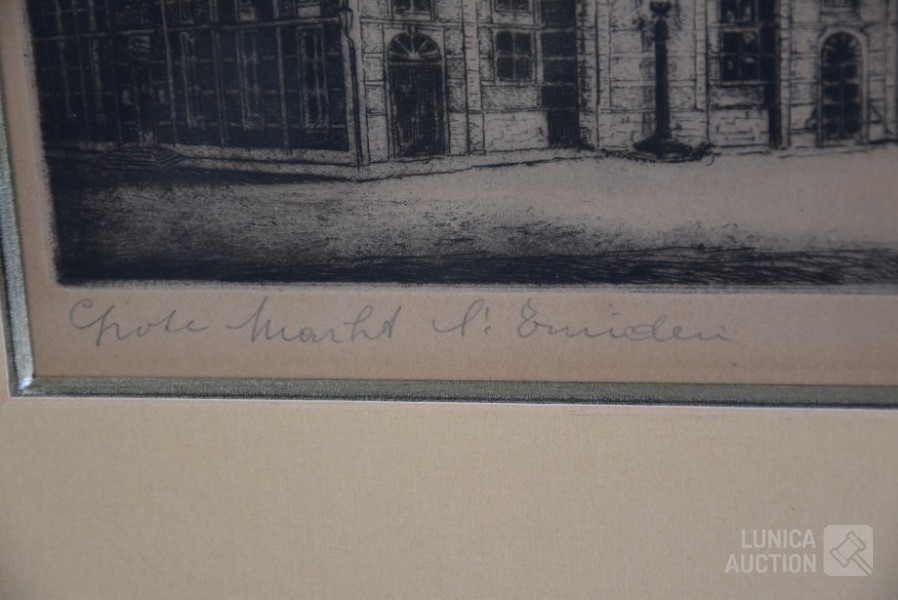 Grote Markt St Truiden
LUNICA
AUCTION